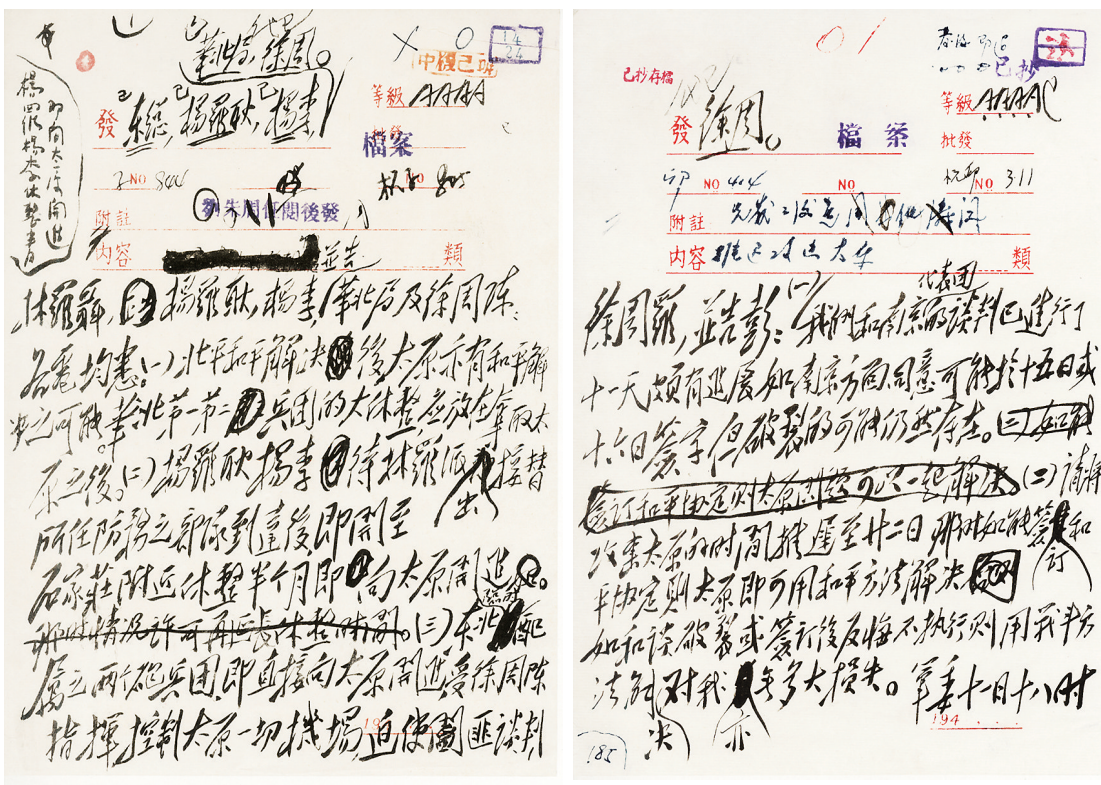 華北局,徐周。
14
24
等級 AAAA
發 東總,楊羅耿,楊李,
批發
檔案
NO 844
NO
劉朱周任閱後發
附註
內容 並告 類
林羅聶,楊羅耿,楊李,華北局及徐周陳:
各電均悉。(一)北平和平解決後太原亦有和平解
決之可能。華北第一第二兵团的大休整應放在奪取太
原之後。(二)楊羅耿楊李待林羅派出接替
所任防務之部隊到達後即開至
石家莊附近休整半个月即向太原開進。
那時情況許可再延長休整時間。(三)東北配
屬之两个砲兵团,即直接向太原開進受徐周陳
指揮,控制太原一切機場,迫使閻匪談判
194
已抄存檔
已抄
等級 AAAAC
發 徐周。
檔案
批發
NO 404
NO
NO 311
附註
內容 推迟攻击太原 類
徐周羅,並告彭:(一)我們和南京代表团的談判已進行了
十一天頗有進展如南京方面同意可能於十五日或
十六日簽字但破裂的可能仍然存在。(二)如能
簽訂和平協定則太原問題可以一起解決。(二)請將
攻擊太原的時間推遲至廿二日那時如能簽訂和
平協定則太原即可用和平方法解決
如和談破裂或簽訂後反悔不执行則用戰斗方
法解決对我亦無多大損失。軍委十一日十八时
194
185